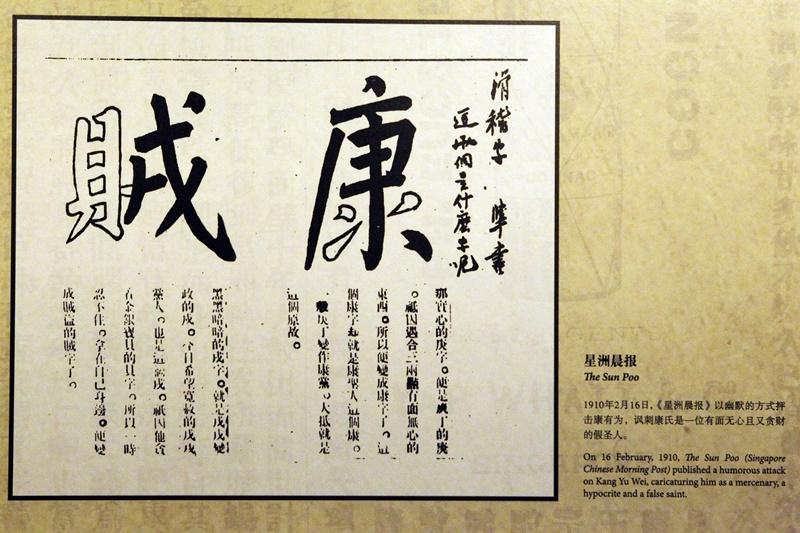 滑稽字
這兩個是什麼字呢
康
賊
那實心的庚字。便是庚丁的庚
。祇因遇合三兩點有面無心的
東西。所以便變成康字了。這
個康字却就是康聖人這個康。
庚丁變作康黨。大抵就是
這個原故。
黑黑暗暗的戌字。就是戊戌變
政的戌。今日希望寬赦的戊戌
黨人。也是這個戌。祇因他貪
右金銀寶貝的貝字。所以一時
忍不住。拿在自己身邊。便變
成賊盜的賊字了。
星洲晨报
The Sun Poo
1910年2月16日，《星洲晨报》以幽默的方式抨
击康有为，讽刺康氏是一位有面无心且又贪财
的假圣人。
On 16 February, 1910, The Sun Poo (Singapore
Chinese Morning Post) published a humorous attack
on Kang Yu Wei, caricaturing him as a mercenary, a
hypocrite and a false saint.